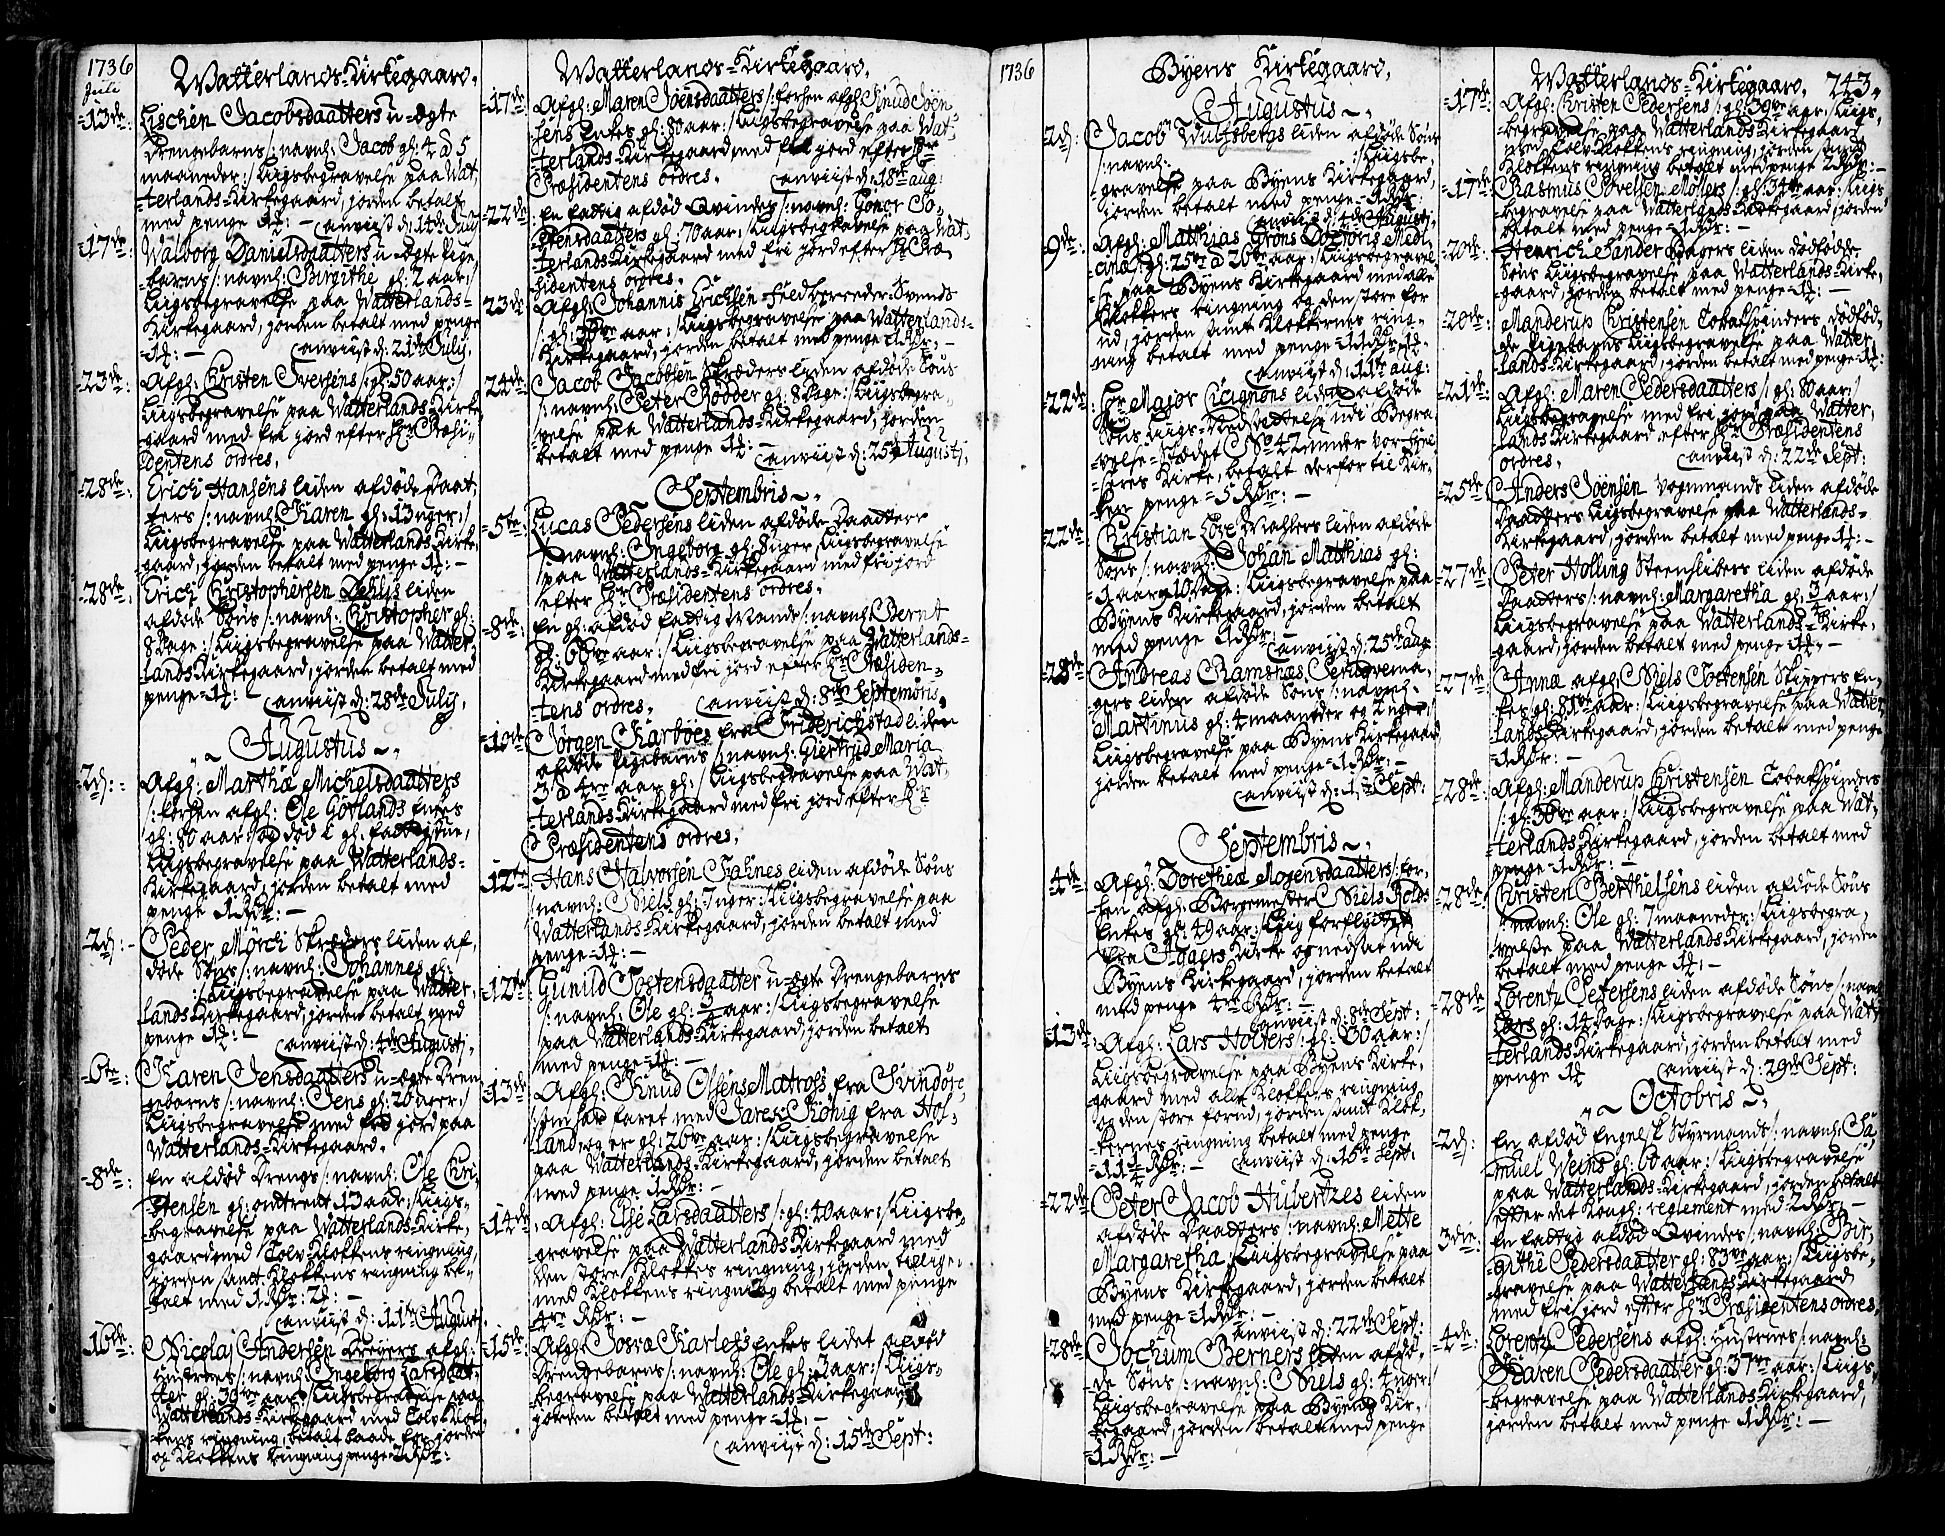 1736
Juli
Watterlands-Kirkegaard,
-13de: Lischen Jacobsdaatters u-ægte
Drengebarns /: navnl: Jacob gl: 4 a 5
maaneder :/ Liigsbegravelse paa Wat,
terlands-Kirkegaard, jorden betalt
med penge 1 : — anviist d: 14de July
-17de: Walborg Danielsdaatters u-ægte Pige-
barns /: navnl: Birgithe gl: 2 aar :/
Liigsbegravelse paa Watterlands-
Kirkegaard, jorden betalt med penge
: — anviist d: 21de July.
-23de: Afgl: Kristen Iversens /: gl: 50 aar :/
Liigsbegravelse paa Watterlands-Kirke
gaard med fri jord efter Hr: Præsi-
dentens ordres.
-28de: Erich Hansens liden afdøde Daat,
ters /: navnl: Karen gl: 13 uger :/
Liigsbegravelse paa Watterlands-Kirke,
gaard, jorden betalt med penge : —
-28de: Erich Christophersen liden
afdøde Søns /: navnl: Christopher gl:
8 Dage :/ Liigsbegravelse paa Watter-
lands-Kirkegaard, jorden betalt med
penge : — anviist d: 28de July.
Augustus
2d: Afgl: Martha Michelsdaatters
/: forhen afgl: Ole Gørlands Enkes
gl: 80 aar :/
Liigsbegravelse paa Watterlands-
Kirkegaard, jorden betalt med
penge 1 Rdr: —
2d: Peder Mørch Skræders liden af,
døde Søns /: navnl: Johannes gl:
:/ Liigsbegravelse paa Watter,
lands-Kirkegaard, jorden betalt med
penge : — anviist d: 4de Augustj.
-6te: Karen Jensdaatters u-ægte Dren
gebarns /: navnl: Jens gl: 20 uger :/
Liigsbegravelse med fri jord paa
Watterlands-Kirkegaard.
-8de: En afdød Drengs /: navnl: Ole Kri-
stensen gl: omtrent 13 aar :/ Liigs-
begravelse paa Watterlands-Kirke,
gaard med Tolv-Klokkens ringning,
jorden samt Klokkens ringning be-
talt med 1 Rdr: 2 : —
anviist d: 11te August.
16de: Nicolaj Andersen afgl:
Hustrues /: navnl: Ingeborg Larsdaat-
ter gl: 39ve aar :/ Liigsbegravelse paa
Watterlands-Kirkegaard med Tolv-Klok-
kens ringning, betalt baade for jorden
og Klokkens ringning penge 2 Rdr:
Watterlands-Kirkegaard.
-17de: Afgl: Maren Joensdaatters /: forhen afgl: Knud Joen
sens Enkes gl: 80 aar :/ Liigsbegravelse paa Wat,
terlands-Kirkegaard med fri jord efter Hr
Præsidentens ordres. anviist d: 18de aug:
-22de: En fattig afdød Qvindes /: navnl: Gonor To-
stensdaatters gl: 70 aar :/ Liigsbegravelse paa Wat,
terlands-Kirkegaard med fri jord efter Hr: Præ
sidentens ordres.
23de Afgl: Johannis Erichsen Svends
/: gl: aar :/ Liigsbegravelse paa Watterlands-
Kirkegaard, jorden betalt med penge 1 Rdr: —
24de: Jacob Jacobsen Skræders liden afdøde Søns
/: navnl: Peter Bødder gl: 8 Dage :/ Liigsbegra-
velse paa Watterlands-Kirkegaard, jorden
betalt med penge : — anviist d: 25de Augustj.
Septembris
-5te: Lucas Pedersens liden afdøde Daatters
/: navnl: Ingeborg gl: 8 uger Liigsbegravelse
paa Watterlands-Kirkegaard med fri jord
efter Hr: Præsidentens ordres.
-8de: En gl: afdød fattig Mands /: navnl: Bernt
gl: 68ve aar :/ Liigsbegravelse paa Watterlands-
Kirkegaard med fri jord efter Hr: Præsiden-
tens ordres. anviist d: 8de Septembris.
-10de Jørgen Karboes fra Friderichstad liden
afdøde Pigebarns /: navnl: Giertrud Maria
3 a 4re aar gl: :/ Liigsbegravelse paa Wat,
terlands-Kirkegaard med fri jord efter Hr
Præsidentens ordres.
12te: Hans Halvorsen Kalnes liden afdøde Søns
/: navnl: Niels gl: 7 uger :/ Liigsbegravelse paa
Watterlands-Kirkegaard, jorden betalt med
penge : —
-12te: Gunild Tostensdaatter u-ægte Drengebarns
/: navnl: Ole gl: aar :/ Liigsbegravelse
paa Watterlands-Kirkegaard, jorden betalt
med penge : —
-13de: Afgl: Knud Olsens Matros fra Svindöre
som har faret med Jares König fra Hol-
land, og er gl: 26ve aar :/ Liigsbegravelse
paa Watterlands-Kirkegaard, jorden betalt
med penge 1 Rdr: —
-14de: Afgl: Else Larsdaatters /: gl: 40 aar :/ Liigsbe-
gravelse paa Watterlands-Kirkegaard med
den store Klokkes ringning, jorden tillige
med Klokkens ringning betalt med penge
4re Rdr: —
-15de: Afgl: Enkes lidet afdød
Drengebarns /: navnl: Ole gl: 3 aar :/ Liigs-
begravelse paa Watterlands-Kirkegaard
jorden betalt med penge : —
anviist d: 15de Sept:
1736
Byens Kirkegaard.
Augustus
2d: Jacob Wulfsbergs liden afdøde Søns
/: navnl: :/ Liigsbe,
gravelse paa Byens Kirkegaard,
jorden betalt med penge 1 Rdr:
anviist d: 4de Augustj.
9de: Afgl: Matthias Grøns Doctoris Medi
cinæ /: gl: 25ve a 26ve aar :/ Liigsbegravel
se paa Byens Kirkegaard med alle
Klokkers ringning og den store for
ud, jorden samt Klokkernes ring-
ning betalt med penge 11 Rdr:
anviist d: 11te aug:
-22de: Hr Major Cicignons liden afdøde
Søns Liigs-Nedsættelse udi Begra
velse-Stædet No 42 under Vor Frel
seres Kirke, betalt derfor til Kir-
ken penge 5 Rdr: —
22de: Christian Løve Mahlers liden afdøde
Søns /: navnl: Johan Matthias gl:
1 aar 10 Dage :/ Liigsbegravelse paa
Byens Kirkegaard, jorden betalt
med penge 1 Rdr: —
anviist d: 25de aug
-28de: Andreas Ramsæs
gers liden afdøde Søns /: navnl:
Martinus gl: 4 maaneder og 2 uger :/
Liigsbegravelse paa Byens Kirkegaard
jorden betalt med penge 1 Rdr: —
anviist d: 1te Sept:
Septembris
4de: Afgl: Dorethea Mogensdaatters /: for-
hen afgl: Borgemester Niels Kolds
Enkes gl: 49 aar :/ Liig forflyttet
fra Agers Kirke og nedsat udi
Byens Kirkegaard, jorden betalt
med penge 4re Rdr: —
anviist d: 8de Sept:
13de: Afgl: Lars Holters /: gl: 60 aar :/
Liigsbegravelse paa Byens Kirke-
gaard med alle Klokkers ringning
og den store forud, jorden samt Klok-
kernes ringning betalt med penge
11 Rdr: — anviist d: 15de Sept:
-22de: Peter Jacob Hübertzes liden
afdøde Daatters /: navnl: Mette
Margaretha :/ Liigsbegravelse paa
Byens Kirkegaard, jorden betalt
med penge 1 Rdr: —
anviist d: 22de Sept:
-28de: Jochum Berners liden afdø-
de Søns /: navnl: Niels gl: 4 uger :/
Liigsbegravelse paa Byens Kir-
kegaard, jorden betalt med penge
1 Rdr: —
Watterlands-Kirkegaard. 243.
-17de: Afgl: Kristen Pedersens /: gl: 39ve aar :/ Liigs-
begravelse paa Watterlands-Kirkegaard
med Tolv-Klokkens ringning, jorden samt
Klokkens ringning betalt med penge 2 Rdr: —
-17de: Rasmus Povelsen Møllers /: gl: 34re aar :/ Liigs
begravelse paa Watterlands-Kirkegaard, jorden
betalt med penge 1 Rdr: —
20de: Henrich Sander Bagers liden dødfødde
Søns Liigsbegravelse paa Watterlands-Kirke,
gaard, jorden betalt med penge : —
-20de: Manderup Christensen Tobakspinders dødfød-
de Pigebarns Liigsbegravelse paa Watter,
lands-Kirkegaard, jorden betalt med penge
-21de: Afgl: Maren Pedersdaatters /: gl: 80 aar :/
Liigsbegravelse med fri jord paa Watter,
lands-Kirkegaard efter Hr: Præsidentens
ordres. anviist d: 22de Sept:
-25de: Anders Joensen Vognmands liden afdøde
Daatters Liigsbegravelse paa Watterlands-
Kirkegaard, jorden betalt med penge : —
-27de: Peter Holling Steenslibers liden afdøde
Daatters /: navnl: Margaretha gl: 3/4 aar :/
Liigsbegravelse paa Watterlands-Kirke-
gaard, jorden betalt med penge : —
-27de: Anna afgl: Niels Tostensen Skippers En-
kes gl: 81ve aar :/ Liigsbegravelse paa Watter
lands-Kirkegaard, jorden betalt med penge
1 Rdr: —
-28de: Afgl: Manderup Christensen Tobakspinders
/: gl: 38ve aar :/ Liigsbegravelse paa Wat,
terlands-Kirkegaard, jorden betalt med
penge 1 Rdr: —
-28de: Kristen Berthelsens liden afdøde Søns
/: navnl: Ole gl: 7 maaneder :/ Liigsbegra,
velse paa Watterlands-Kirkegaard, jorden
betalt med penge : —
-28de: Lorentz Petersens liden afdøde Søns /: navnl
Lars gl: 14 Dage :/ Liigsbegravelse paa Wat
terlands-Kirkegaard, jorden betalt med
penge anviist d: 29de Sept:
Octobris
2d: En afdød Engelsk Styrmands /: navnl: Sa
muel Weins gl: 60 aar :/ Liigsbegravelse
paa Watterlands-Kirkegaard, jorden betalt
efter det Kongl: reglement med 2 Rdr: —
3die: En fattig afdød Qvindes /: navnl: Bir,
githe Pedersdaatter gl: 83ve aar :/ Liigsbe-
gravelse paa Watterlands-Kirkegaard
med fri jord efter Hr: Præsidentens ordres.
-4de: Lorentz Pedersens afgl: Hustrues /: navnl:
Karen Pedersdaatter gl: 37ve aar :/ Liigs
begravelse paa Watterlands-Kirkegaard,
jorden betalt med penge 1 Rdr: —